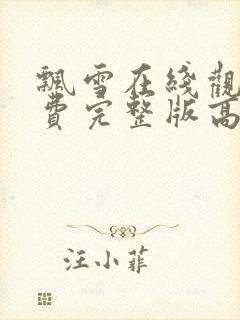 飄雪在綫觀
費完整版高
汪小菲